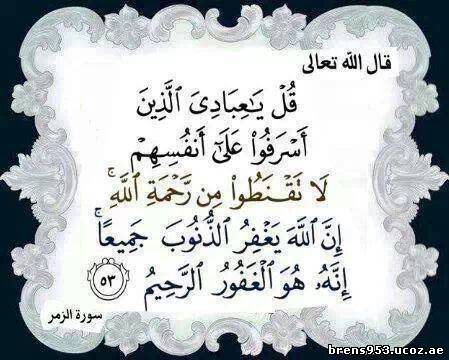 قال الله تعالى
قُلْ يَٰعِبَادِىَ ٱلَّذِينَ
أَسْرَفُوا۟ عَلَىٰٓ أَنفُسِهِمْ
لَا تَقْنَطُوا۟ مِن رَّحْمَةِ ٱللَّهِ ۚ
إِنَّ ٱللَّهَ يَغْفِرُ ٱلذُّنُوبَ جَمِيعًا ۚ
إِنَّهُۥ هُوَ ٱلْغَفُورُ ٱلرَّحِيمُ ٥٣
سورة الزمر
brens953.ucoz.ae